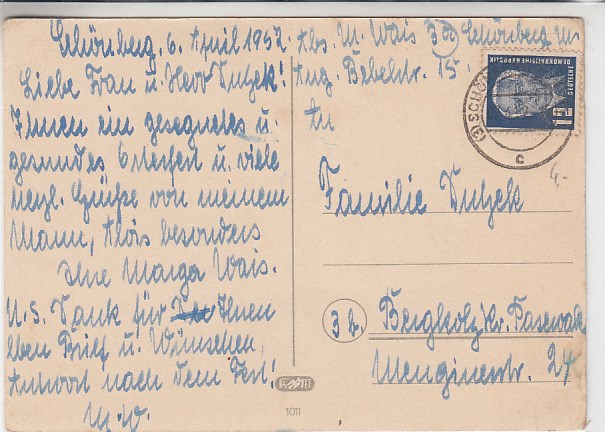 Schönberg, 6. April 1952.
Liebe Frau u. Herr Dutzek!
Ihnen ein gesegnetes u.
gesundes Osterfest u. viele
herzl. Grüße von meinem
Mann, Alois besonders
Ihre Marga Wais.
N.S. Dank für Ihnen
lben Brief u. Wünschen,
Antwort nach dem Fest!
M.W.
Abs. M. Wais 3a Schönberg
Aug. Bebelstr. 15.
An
Familie Dutzek
3 b. Bergholz Kr. Pasewalk
24
DEUTSCHE
DEMOKRATISCHE REPUBLIK
12
c
4,-
1011